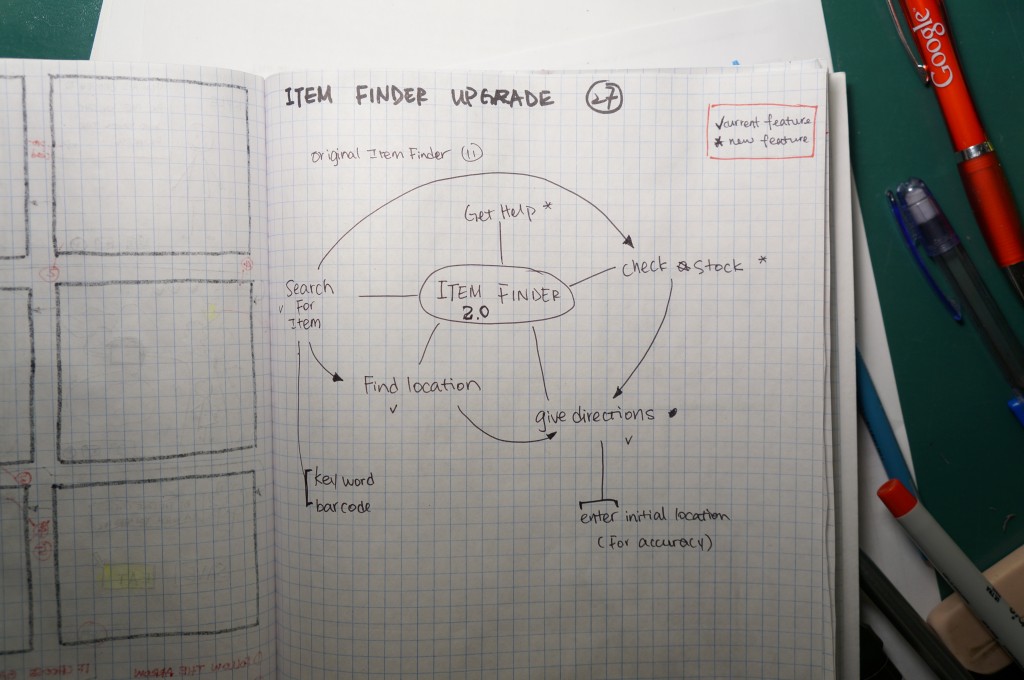 ITEM FINDER UPGRADE 27
✓current feature
* new feature
original Item Finder 11
Get Help *
check stock *
Search
✓ For
Item
ITEM FINDER
2.0
Find location
✓
give directions
✓
keyword
barcode
enter initial location
(for accuracy)
Google